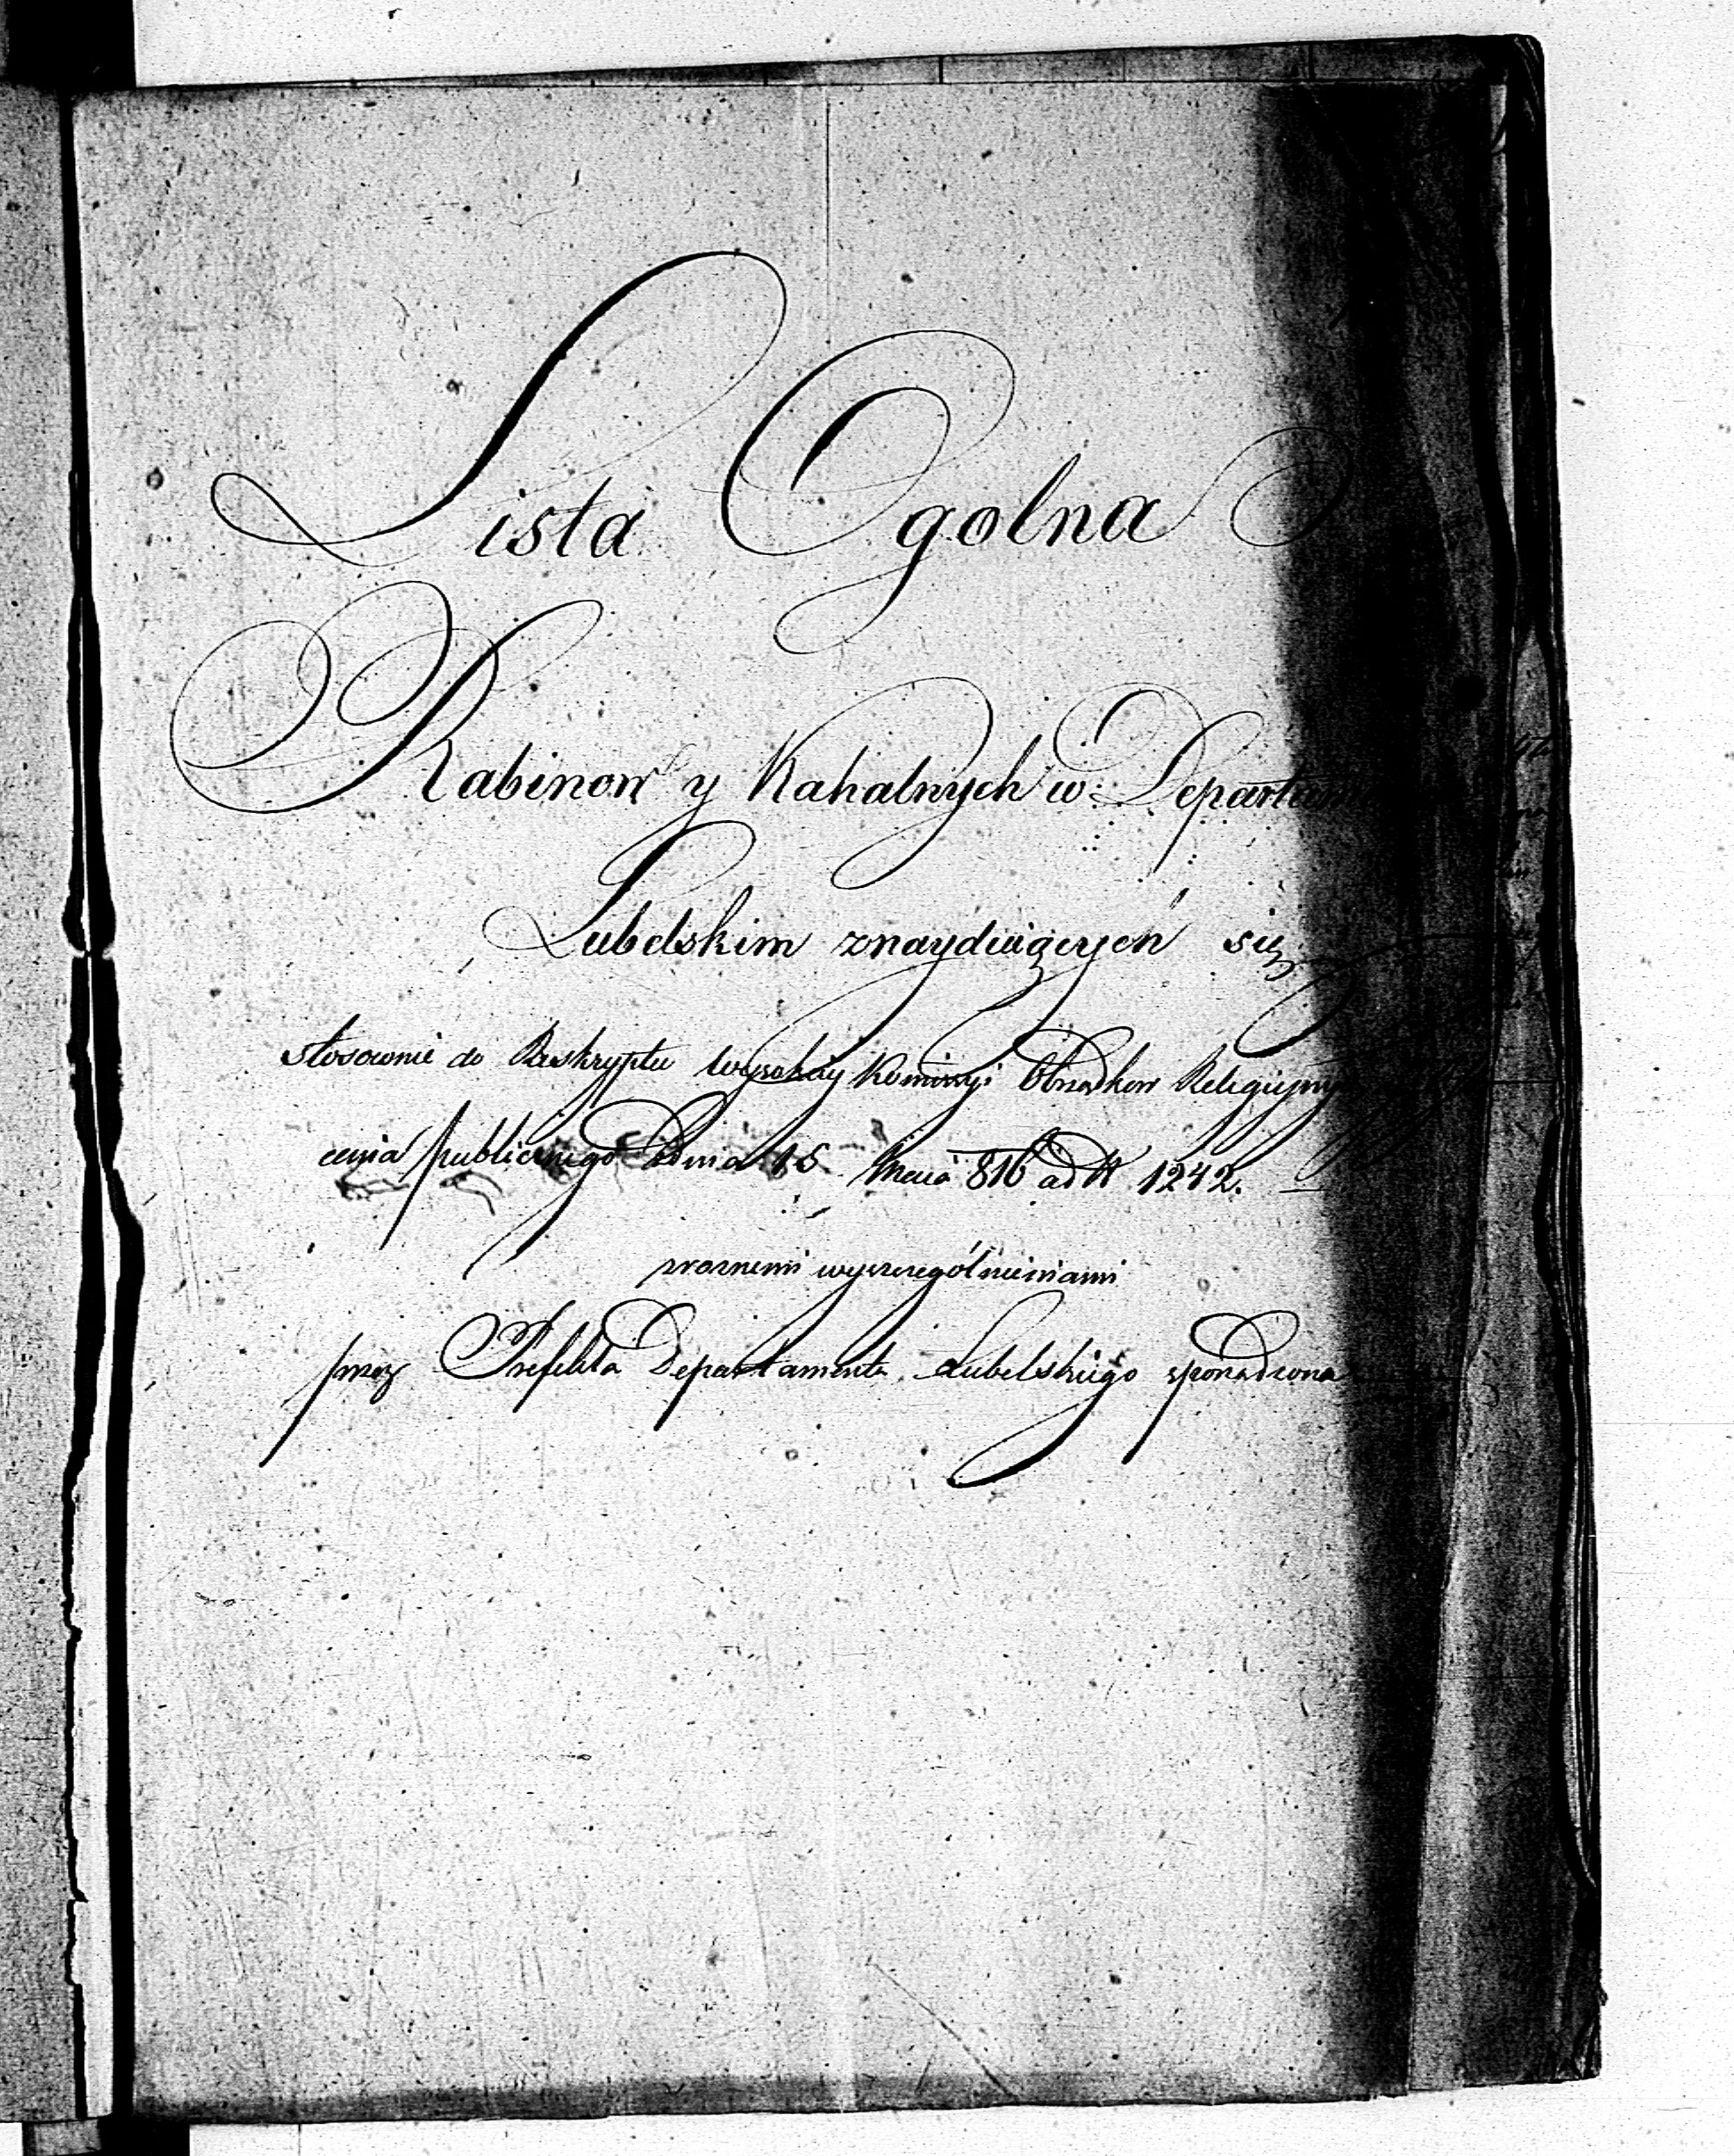 Lista Ogolna
Rabinow y Kahalnych w Departam
Lubelskim znayduiących się
stosownie do Reskryptu wysokiey Kommisyi Obrządkow Religiynych
cenia publicznego z dnia 15 Maia 816 ad N 1242.
z roznemi wyszczegolnieniami
przez Prefekta Departamentu Lubelskiego sporządzona